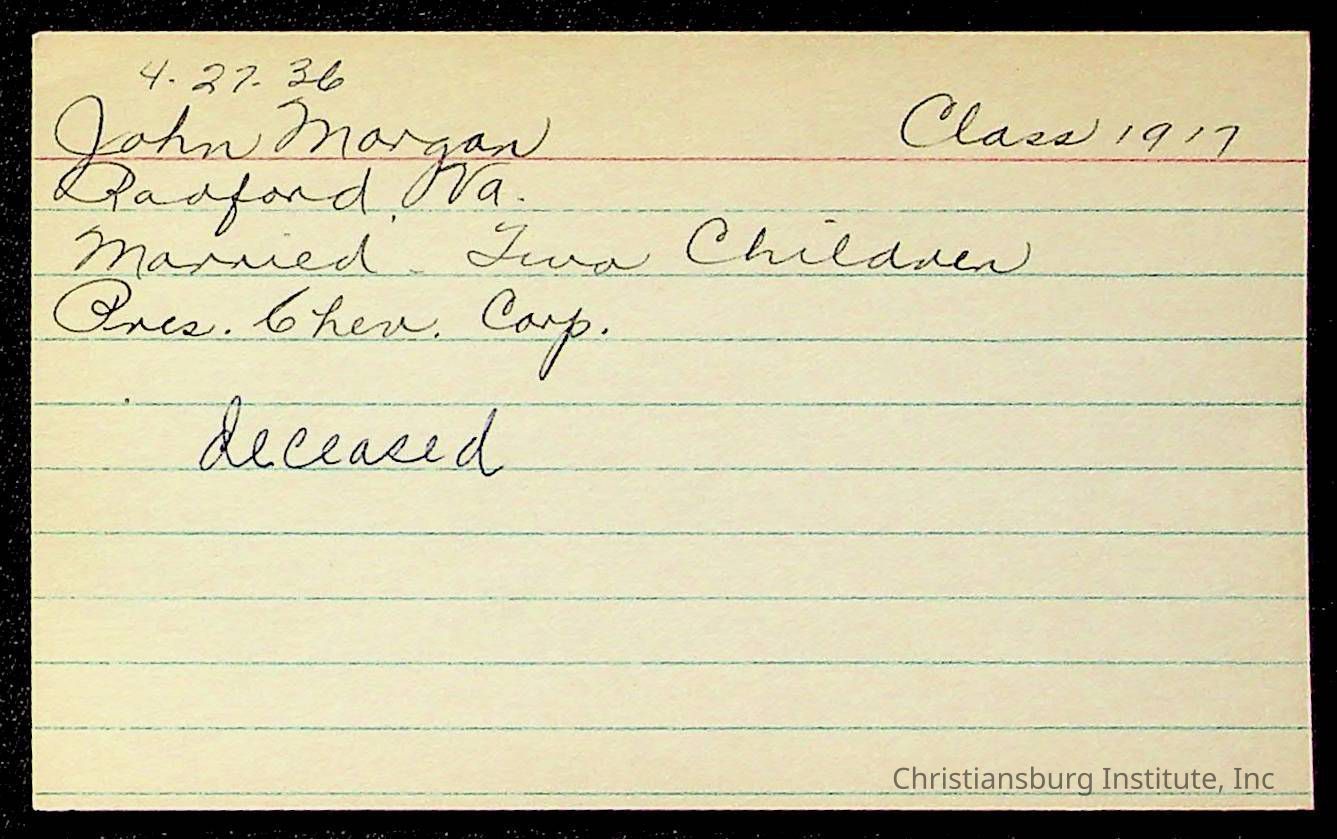 4-27-36
John Morgan Class 1917
Radford, Va.
Married - Two Children
Pres. Chev. Corp.
deceased
Christiansburg Institute, Inc